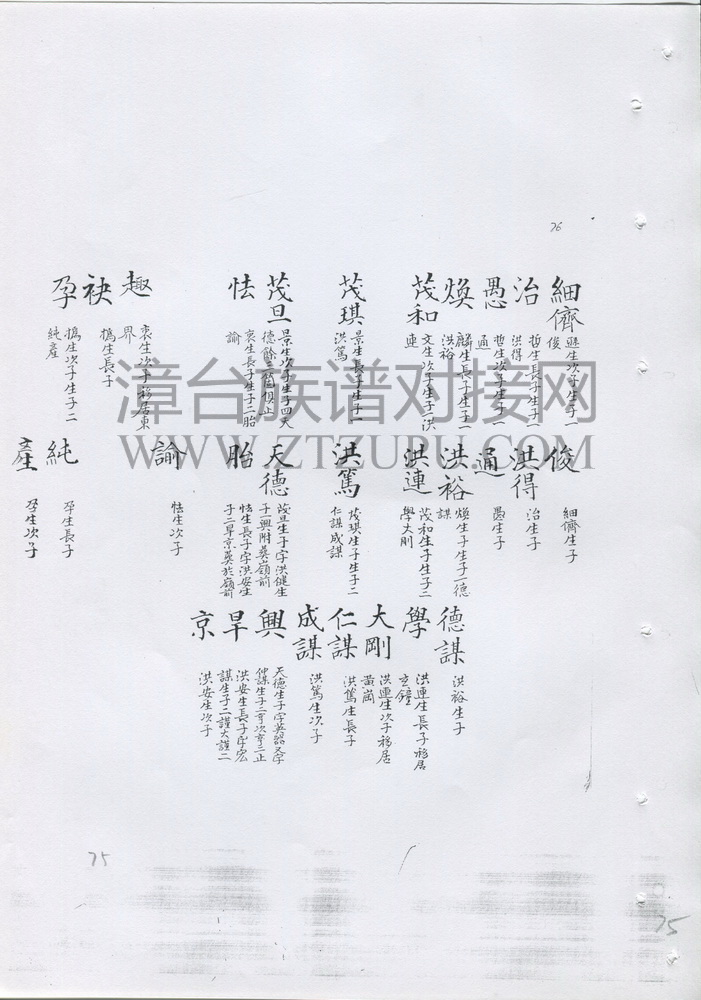 76
細儕
遜生次子生子一
俊
治
哲生長子生子一
洪得
愚
哲生次子生子一
通
煥
麟生長子生子一
洪裕
茂和
文生次子生子一洪
連
茂琪
景生長子生子一
洪篤
茂旦
景生次子生子四天
德餘三箇俱止
怯
衷生長子生子二胎
諭
趣
衷生次子移居東
界
袂
搗生長子
孕
搗生次子生子二
純產
俊
細儕生子
洪得
治生子
通
愚生子
洪裕
煥生子生子一德
謀
洪連
茂和生子生子二
學大剛
洪篤
茂琪生子生子二
仁謀成謀
天德
茂旦生子字洪健生
子一興附葬嶺前
胎
怯生長子字洪安生
子二早京葬於嶺前
諭
怯生次子
純
孕生長子
產
孕生次子
德謀
洪裕生子
學
洪連生長子移居
玄鐘
大剛
洪連生次子移居
黃崗
仁謀
洪篤生長子
成謀
洪篤生次子
興
天德生子字英器又字
早
洪安生長子字宏
謀生子二謹大謹二
京
洪安生次子
漳台族谱对接网
WWW.ZTZUPU.COM
75
75